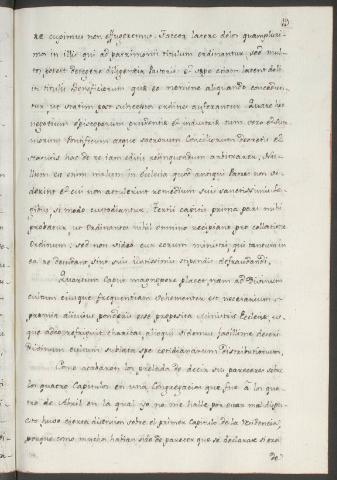 re cupimus non effugeremus. Fateor latere dolos quampluri-
mos in illis qui ad patrimonii titulum ordinantur, sed mul-
tos poterit detegere diligentia Pastoris. Et sepe etiam latent doli
in titulis Beneficiorum que eo nomine aliquando conceduntur,
ut statim post susceptos ordines auferantur. Quare hoc
negotium episcoporum prudentie et industrie cum
morum Pontificum atque sacrorum Conciliorum decretis et
statutis hac de re iam editis relinquendum arbitrarer. Nul-
lum est enim malum in Ecclesia quod antiqui Patres non vi-
derint et cui non attulerint remedium suis sanctissimis Le-
gibus, si modo custodiantur. Tertii capitis prima pars mihi
probatur, ut Ordinantes nihil omnino recipiant pro collatione
Ordinum; sed non video cur eorum ministri, qui tantum in
ea re desudant, sint suis justissimis stipendiis defraudandi.
Quartum Caput magnopere placet, nam ad Divinum
cultum eiusque frequentiam vehementer est necessarium
premia alicuius ponderis esse proposita ministris Ecclesie,
que adeo refriguit charitas, alioqui videmus facillime deseri
Divinum cultum sublata spe cotidianarum Distributionum.
Como acabaron los prelados de decir sus pareceres sobre
los quatro Capitulos en una Congregacion que fue a los qua-
tro de Abril en la qual yo no me halle por estar mal dispues-
to, huvo cierta diversion sobre el primer Capitulo de la Residencia,
porque como muchos habian sido de parecer que se declarase si era
de